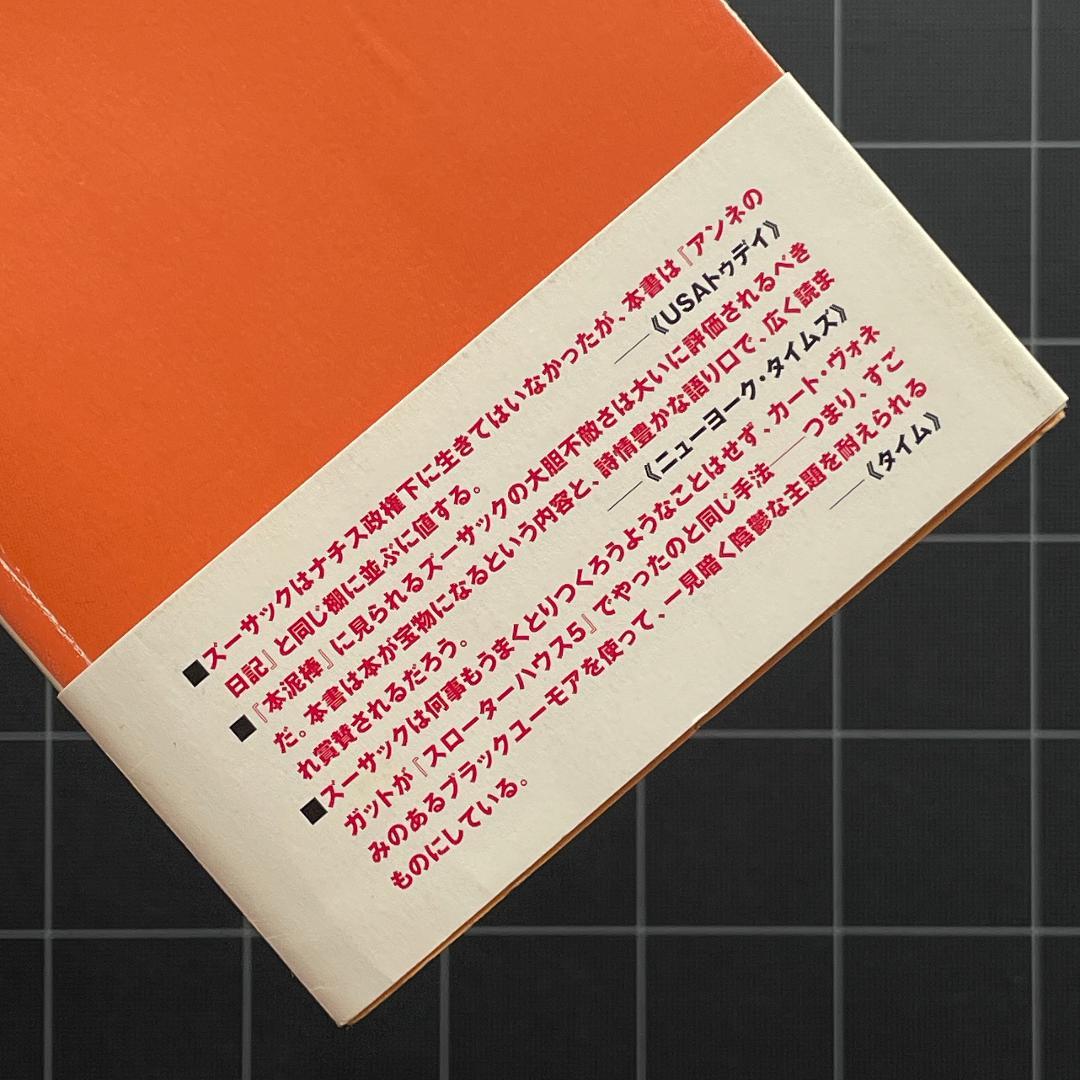 ■ズーサックはナチス政権下に生きてはいなかったが、本書は『アンネの
日記』と同じ棚に並ぶに値する。 ——《USAトゥデイ》
■『本泥棒』に見られるズーサックの大胆不敵さは大いに評価されるべき
だ。本書は本が宝物になるという内容と、詩情豊かな語り口で、広く読ま
れ賞賛されるだろう。 ——《ニューヨーク・タイムズ》
■ズーサックは何事もうまくとりつくろうようなことはせず、カート・ヴォネ
ガットが『スローターハウス5』でやったのと同じ手法——つまり、すご
みのあるブラックユーモアを使って、一見暗く陰鬱な主題を耐えられる
ものにしている。 ——《タイム》